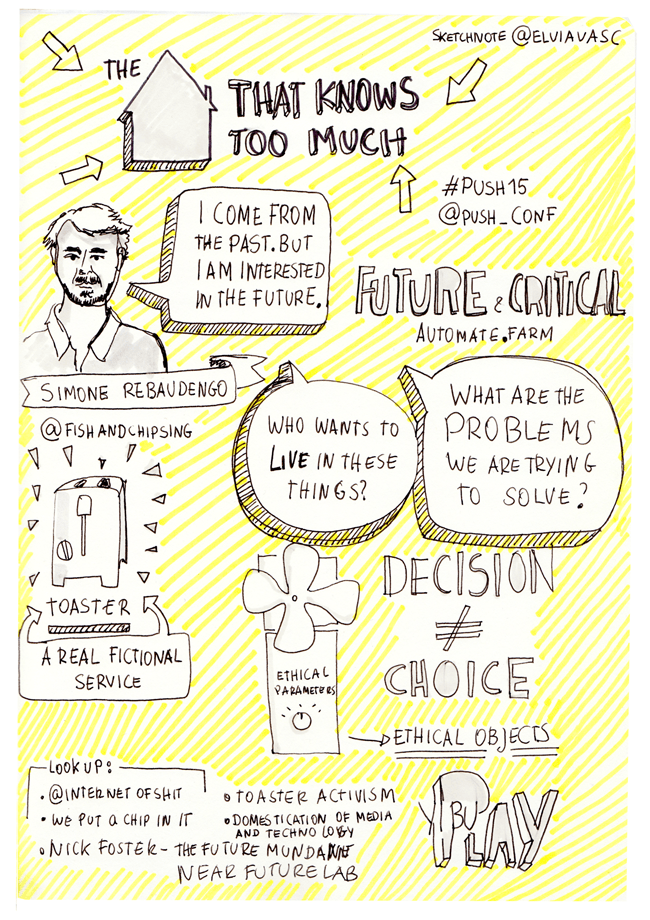 SKETCHNOTE @ELVIAVASC
THE
THAT KNOWS
TOO MUCH
#PUSH15
@PUSH_CONF
I COME FROM
THE PAST. BUT
I AM INTERESTED
IN THE FUTURE.
FUTURE & CRITICAL
AUTOMATE.FARM
SIMONE REBAUDENGO
@FISHANDCHIPSING
WHO WANTS TO
LIVE IN THESE
THINGS?
WHAT ARE THE
PROBLEMS
WE ARE TRYING
TO SOLVE?
TOASTER
A REAL FICTIONAL
SERVICE
DECISION
≠
CHOICE
ETHICAL
PARAMETERS
ETHICAL OBJECTS
LOOK UP:
• @INTERNETOFSHIT
• WE PUT A CHIP IN IT
• NICK FOSTER - THE FUTURE MUNDANE
NEAR FUTURE LAB
• TOASTER ACTIVISM
• DOMESTICATION OF MEDIA
AND TECHNOLOGY
BU
PLAY